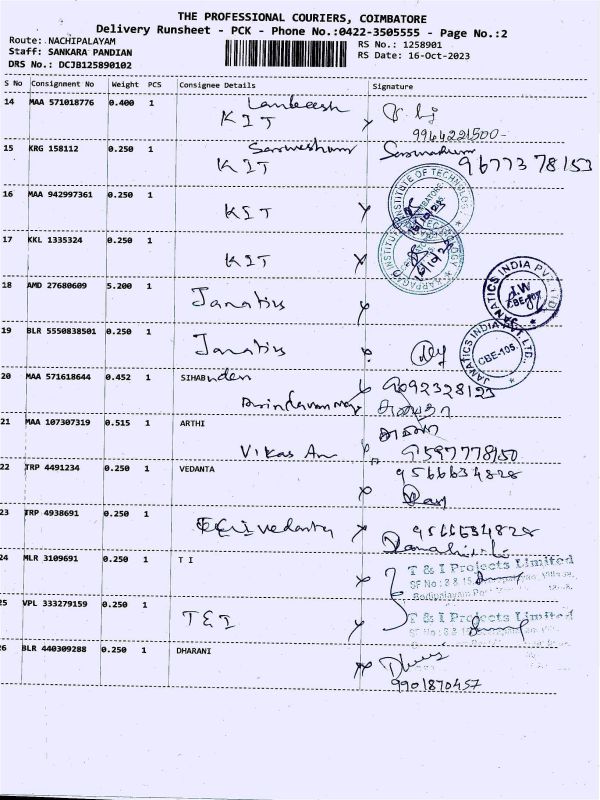 THE PROFESSIONAL COURIERS, COIMBATORE
Delivery Runsheet - PCK - Phone No.:0422-3505555 - Page No.:2
Route: NACHIPALAYAM RS No.: 1258901
Staff: SANKARA PANDIAN RS Date: 16-Oct-2023
DRS No.: DCJB125890102
S No Consignment No Weight PCS Consignee Details Signature
14 MAA 571018776 0.400 1
KIT
9964221500-
15 KRG 158112 0.250 1
KIT 9677378153
16 MAA 942997361 0.250 1
KIT
INSTITUTE OF TECHNOLOGY
COIMBATORE
16/10/23
17 KKL 1335324 0.250 1
KIT
KARPAGAM INSTITUTE OF TECHNOLOGY
16/10/23
18 AMD 27680609 5.200 1
JANATICS INDIA PVT. LTD.
19 BLR 5550838501 0.250 1
JANATICS INDIA PVT. LTD.
CBE-105
20 MAA 571618644 0.452 1 SIHAB 9092328123
21 MAA 107307319 0.515 1 ARTHI
Vikas 9597778150
22 TRP 4491234 0.250 1 VEDANTA 9566634828
23 TRP 4938691 0.250 1
vedanta 9566634828
24 MLR 3109691 0.250 1 T I
T & I Projects Limited
25 VPL 333279159 0.250 1
T & I
T & I Projects Limited
26 BLR 440309288 0.250 1 DHARANI
9901870457